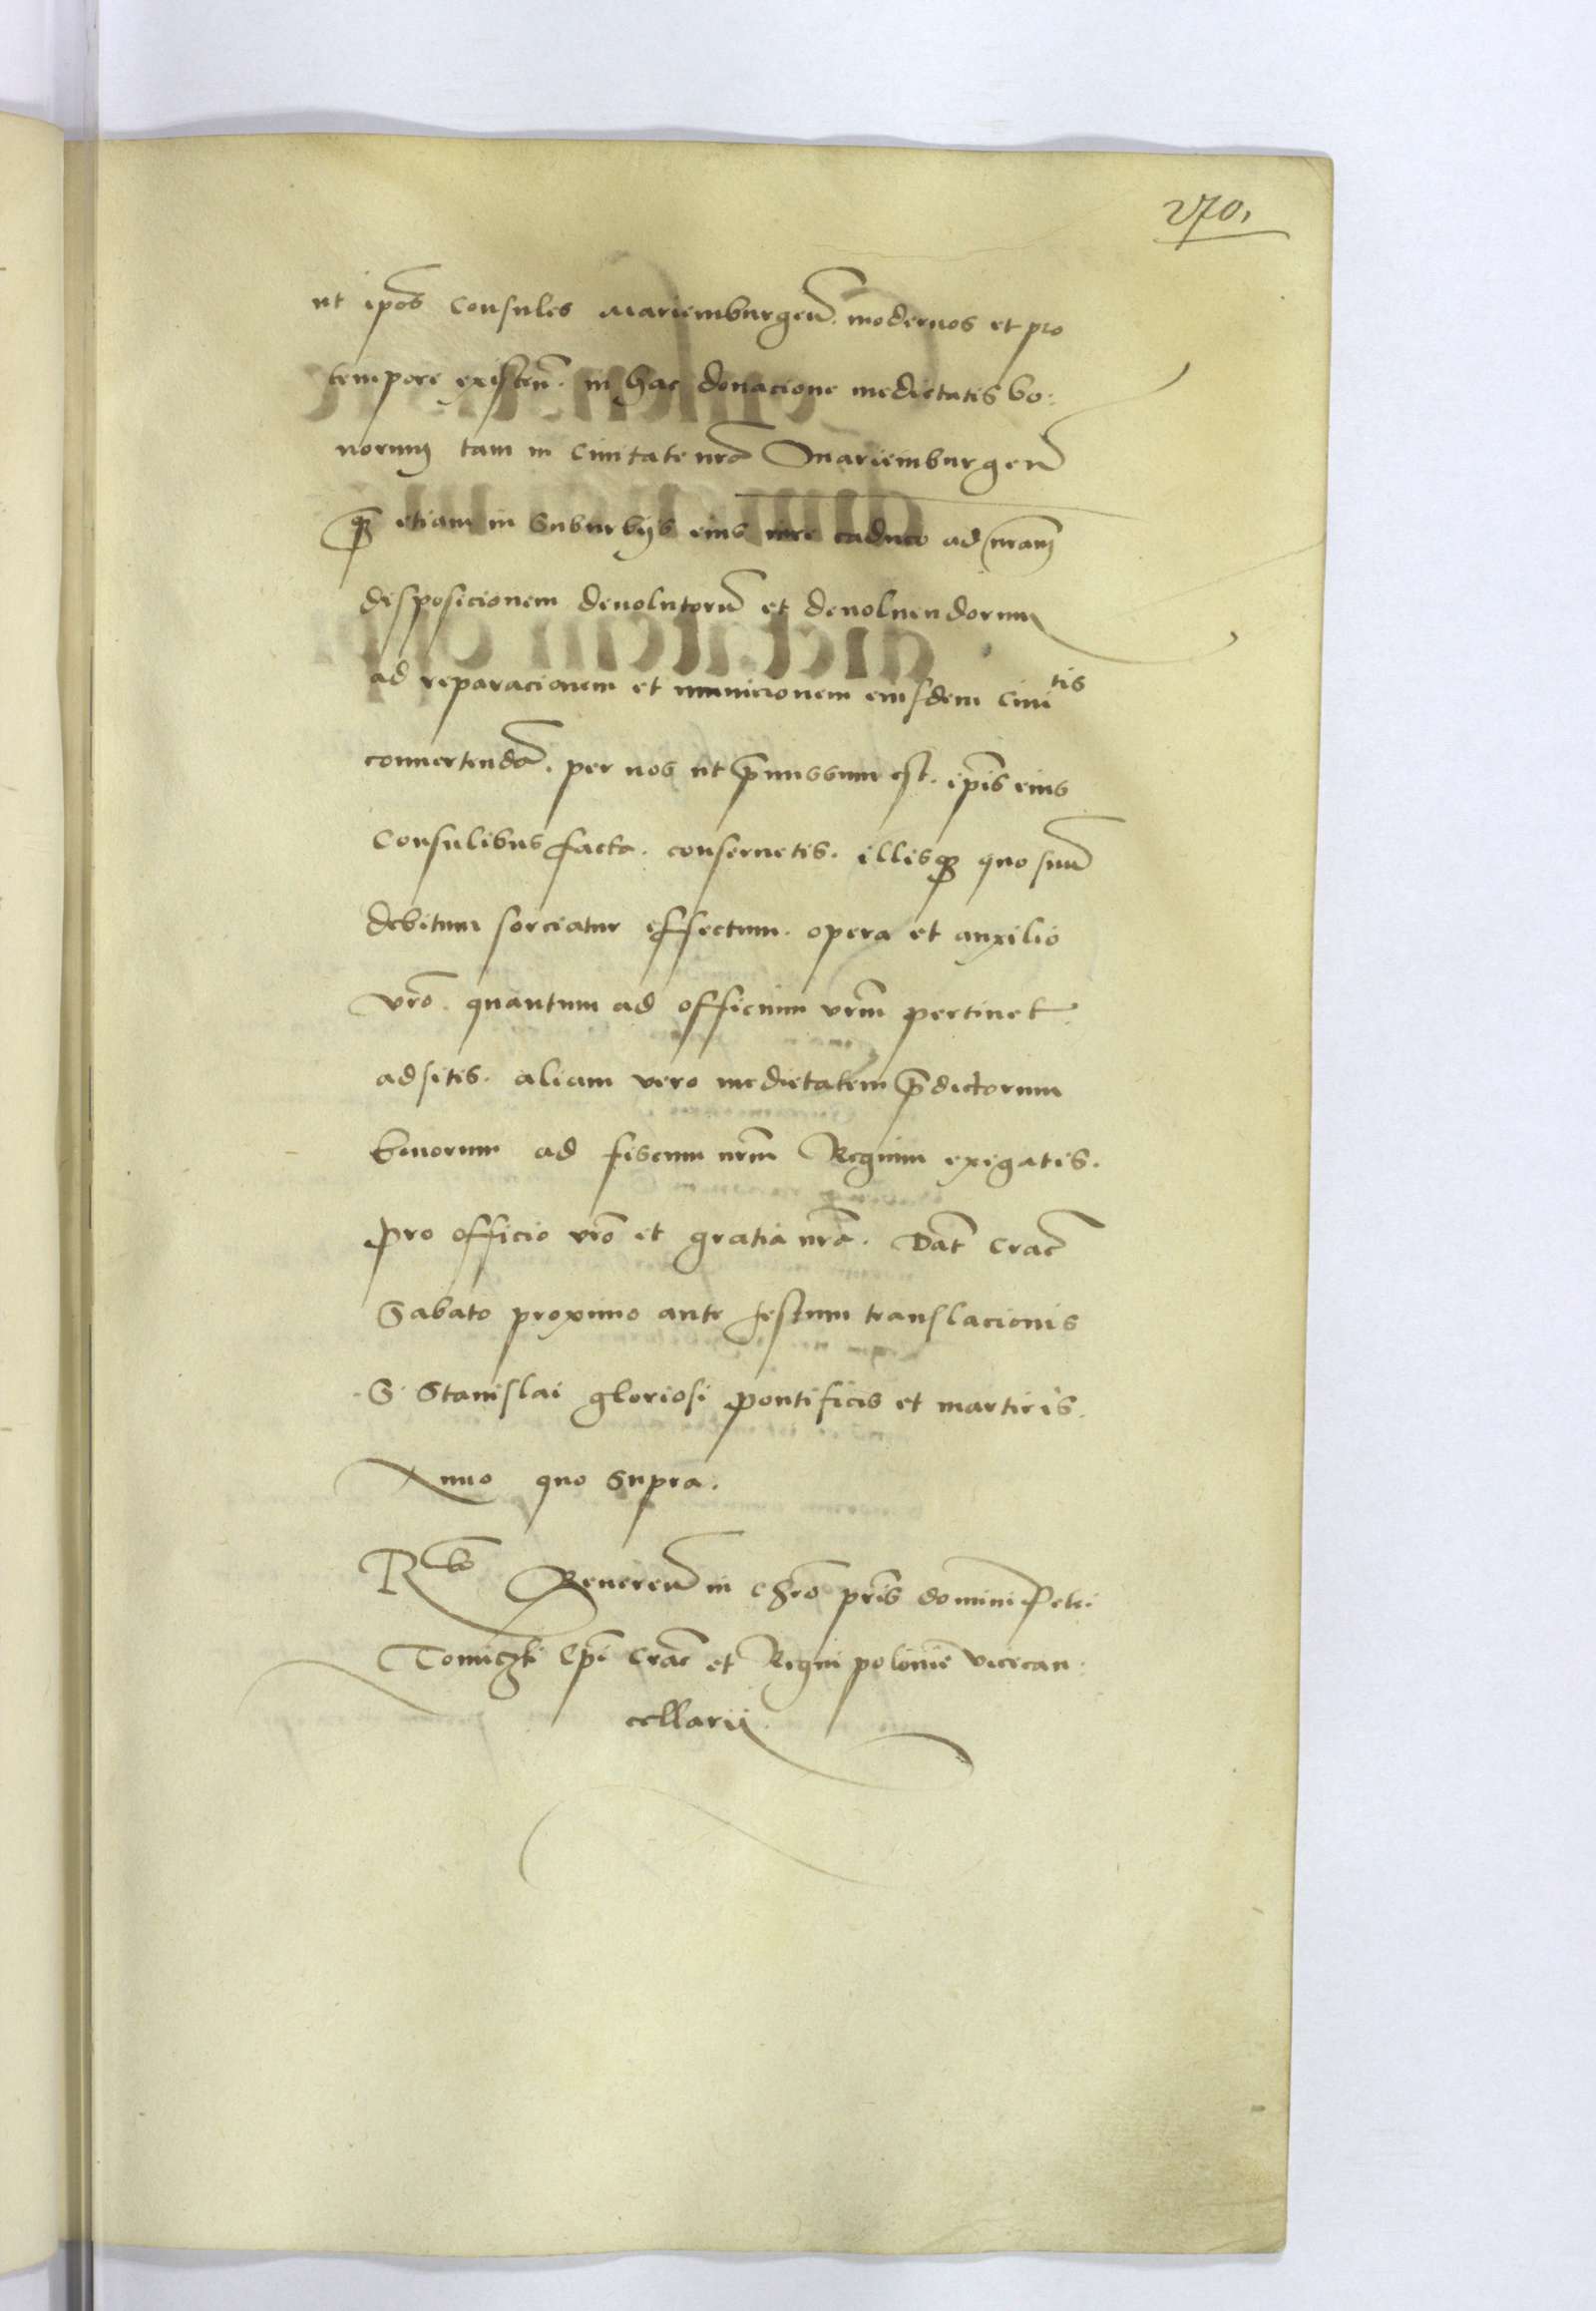 270,
ut ipos Consules Mariemburgen̄. modernos et pro
tempore existen̄. in hac donacione medietatis bo:
norum tam in Ciuitate nra Mariemburgen̄
q̃ etiam in Suburbijs eius iure caduco ad nram
disposicionem deuolutorū et deuoluendorum
ad reparacionem et municionem eiusdem Ciuitis
conuertendā. per nos ut p̃missum est. ipis eius
Consulibus facta. conseruetis. illisq̃ quo suū
debitum sorciatur effectum. opera et auxilio
vro. quantum ad officium vrm̄ pertinet.
adsitis. aliam vero medietatem p̃dictorum
bonorum ad fiscum nrm̄ Regium exigatis.
pro officio vro et gratia nra. Dat̄ Crac̄
Sabato proximo ante festum translacionis
S. Stanislai gloriosi pontificis et martiris.
Anno quo supra.
Rlo Reueren̄ in Chro pris domini Petri
Tomiczki Epi Crac̄ et Regni polonie vicecan:
cellarij